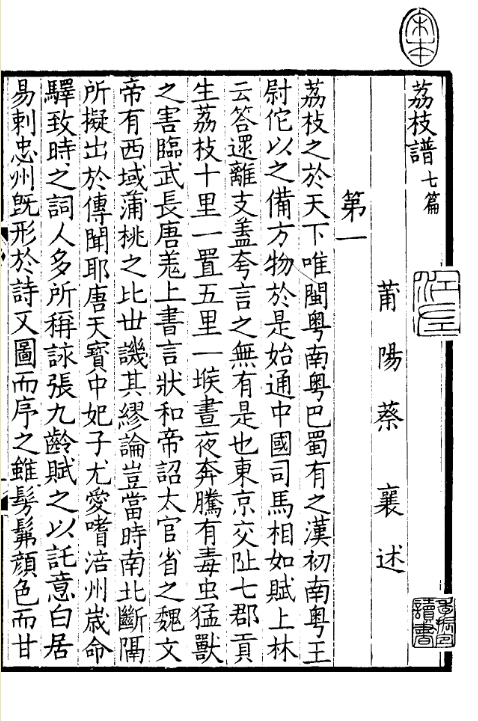 荔枝譜七篇
莆陽蔡襄述
第一
荔枝之於天下唯閩粤南粤巴蜀有之漢初南粤王
尉佗以之備方物於是始通中國司馬相如賦上林
云答遝離支蓋夸言之無有是也東京交阯七郡貢
生荔枝十里一置五里一堠晝夜奔騰有毒虫猛獸
之害臨武長唐羌上書言狀和帝詔太官省之魏文
帝有西域蒲桃之比世譏其繆論豈當時南北斷隔
所擬出於傳聞耶唐天寶中妃子尤愛嗜涪州歲命
驛致時之詞人多所稱詠張九齡賦之以託意白居
易刺忠州旣形於詩又圖而序之雖髣髴顔色而甘